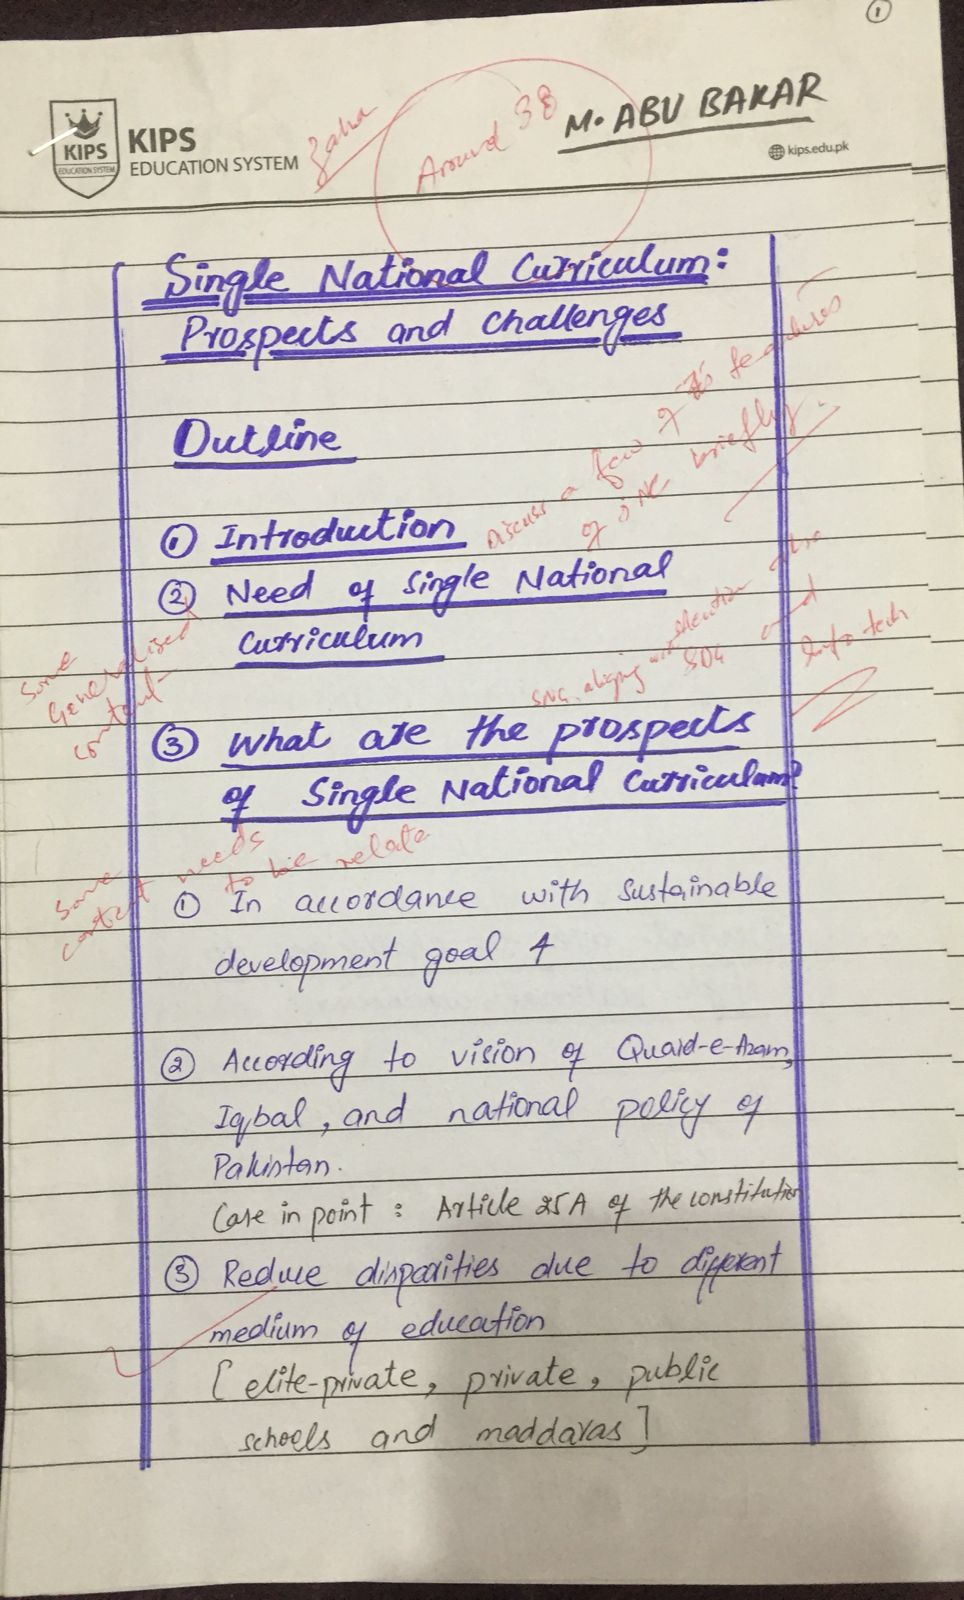 1
KIPS
KIPS
EDUCATION SYSTEM
EDUCATION SYSTEM
Around 38
M. ABU BAKAR
kips.edu.pk
Single National Curriculum:
Prospects and challenges
Outline
Discuss a few of its features
of SNC briefly.
① Introduction
② Need of Single National
Curriculum
Some
Generalised
content
SNC aligning with
SDG and
Info tech
③ What are the prospects
of Single National Curriculum?
Some content needs
to be relate
① In accordance with sustainable
development goal 4
② According to vision of Quaid-e-Azam,
Iqbal, and national policy of
Pakistan.
Case in point : Article 25A of the constitution
③ Reduce disparities due to different
medium of education
[elite-private, private, public
schools and maddaras]